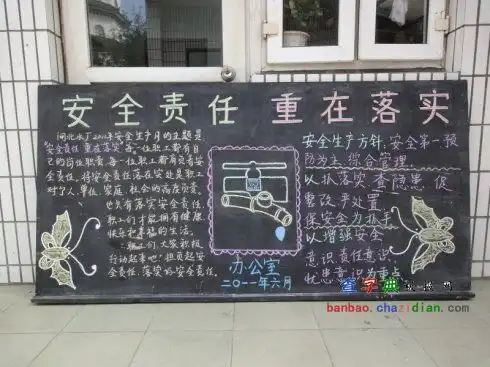 安全责任 重在落实
闸北水厂2011年安全生产月的主题是
"安全责任 重在落实"每一位职工都有自
己的岗位职责,每一位职工都负有安
全责任,将安全责任落在实处是职工
对个人、单位、家庭、社会的
也只有落实安全责任,
职工们才能拥有健康
快乐和幸福的生活。
职工们,大家积极
行动起来吧!担负起安
全责任,落实好安全责任。
办公室
二〇一一年六月
安全生产方针:安全第一预
防为主 综合管理
以抓落实 查隐患 促
整改 严处置
保安全为抓手
以增强安全
意识 责任意识
忧患意识为重点
查字典
banbao.chazidian.com